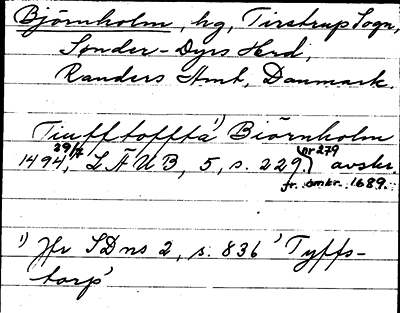 Björnholm, hg, Tirstrup Sogn,
Sönder-Dyrs Hrd,
Randers Amt, Danmark.
Tuufftofftä¹⁾ Biörnholm
1494 29/7, LÄUB, 5, s. 229. (nr 279) avskr.
fr. omkr. 1689.
¹⁾ Jfr SDns 2, s. 836 'Tyffs-
torp'